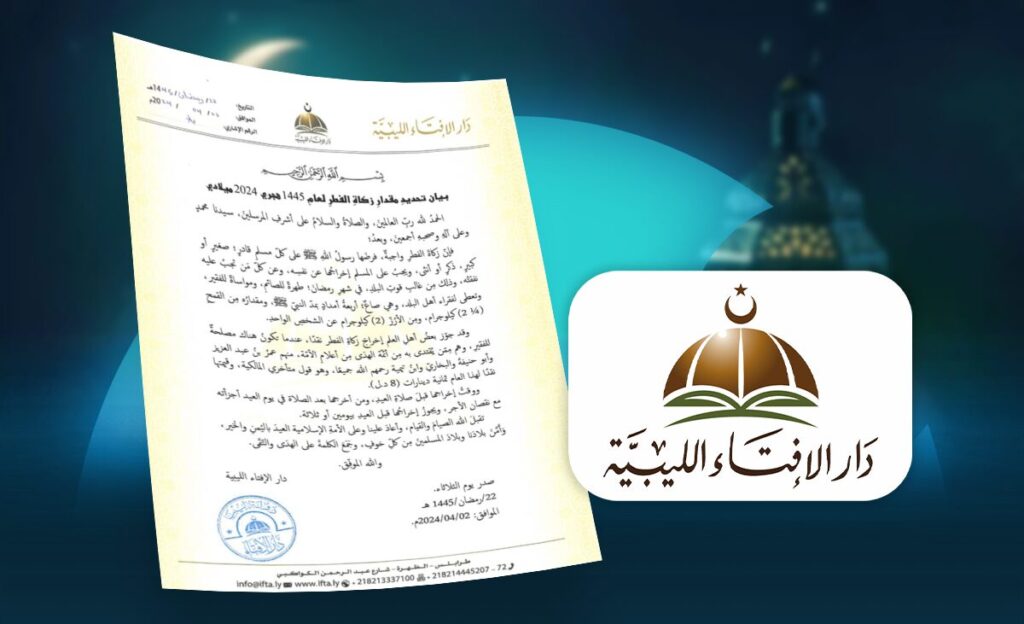 دَار الإفتَاء الليبيَّة
دار الإفتاء الليبية
التاريخ: 22/رمضان/1445هـ
الموافق: 2024/04/02م
الرقم الإشاري:
بِسْمِ اللَّهِ الرَّحْمَنِ الرَّحِيمِ
بيان تحديد مقدار زكاة الفطر لعام 1445 هجري 2024 ميلادي
الحمدُ لله ربِّ العالمين، والصلاةُ والسلامُ على أشرفِ المرسلين، سيدنا محمدٍ
وعلى آله وصحبه أجمعين، وبعدُ؛
فإنَّ زكاةَ الفطرِ واجبةٌ، فرضَها رسولُ اللهِ ﷺ على كلّ مسلمٍ قادرٍ؛ صغيرٍ أو
كبيرٍ، ذكرٍ أو أنثى، ويجبُ على المسلمِ إخراجُها عن نفسِه، وعن كلّ مَن تجبُ عليه
نفقتُه، وذلك مِن غالبِ قوتِ البلدِ، في شهرِ رمضان؛ طهرةً للصائمِ، ومواساةً للفقيرِ،
وتعطى لفقراءِ أهلِ البلد، وهي صاعٌ؛ أربعةُ أمدادٍ بمدّ النبيّ ﷺ، ومقدارُه مِن القمحِ
(2 ¼) كيلوجرام، ومِن الأرُزّ (2) كيلوجرام عن الشخصِ الواحدِ.
وقد جوّز بعضُ أهلِ العلمِ إخراجَ زكاةِ الفطرِ نقدًا، عندما تكونُ هناك مصلحةٌ
للفقيرِ، وهم مِمّن يُقتدى به مِن أئمّة الهدَى مِن أعلامِ الأمّة، منهم عمرُ بنُ عبد العزيز
وأبو حنيفةَ والبخاريّ وابنُ تيميةَ رحمهم الله جميعًا، وهو قول متأخري المالكية، وقيمتُها
نقدًا لهذا العام ثمانية دينارات (8 د.ل).
ووقتُ إخراجها قبلَ صلاةِ العيدِ، ومن أخرجها بعد الصلاة في يوم العيد أجزأته
مع نقصان الأجر، ويجوزُ إخراجُها قبل العيد بيومين أو ثلاثة.
تقبلَ الله الصيام والقيام، وأعادَ علينا وعلى الأمةِ الإسلامية العيدَ باليُمن والخير،
وأمَّن بلادَنا وبلادَ المسلمين مِن كلّ خوفٍ، وجمعَ الكلمةَ على الهدَى والتقَى.
والله الموفّق.
دار الإفتاء الليبية
صدر يوم الثلاثاء.
22/رمضان/1445 هـ
الموافق: 2024/04/02م.
دار الإفتاء
طرابلس - الظهرة - شارع عبد الرحمن الكواكبي
info@ifta.ly www.ifta.ly +218213337100 +218214445207 - 72
دَار الإفتَاء الليبيَّة